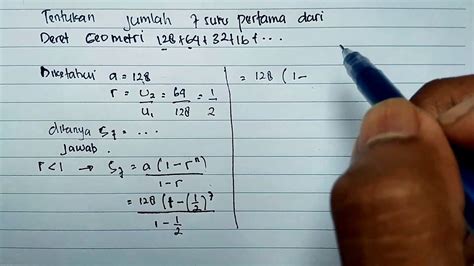 Tentukan jumlah 7 suku pertama dari
Deret Geometri 128 + 64 + 32 + 16 + ...
Diketahui a = 128
r = U₂/U₁ = 64/128 = 1/2
ditanya S₇ = ...
Jawab.
r < 1 → S₇ = a (1 - rⁿ) / 1 - r
= 128 (1 - (1/2)⁷ / 1 - 1/2
= 128 ( 1 -